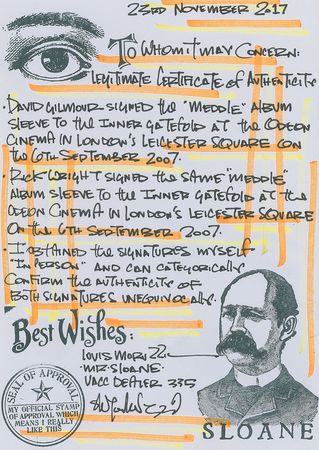 23RD NOVEMBER 2017
TO WHOM IT MAY CONCERN:
LEGITIMATE CERTIFICATE OF AUTHENTICITY
• DAVID GILMOUR SIGNED THE "MEDDLE" ALBUM
SLEEVE TO THE INNER GATEFOLD AT THE ODEON
CINEMA IN LONDON'S LEICESTER SQUARE ON
THE 6TH SEPTEMBER 2007.
• RICK WRIGHT SIGNED THE SAME "MEDDLE"
ALBUM SLEEVE TO THE INNER GATEFOLD AT THE
ODEON CINEMA IN LONDON'S LEICESTER SQUARE
ON THE 6TH SEPTEMBER 2007.
• I OBTAINED THE SIGNATURES MYSELF
"IN PERSON" AND CAN CATEGORICALLY
CONFIRM THE AUTHENTICITY OF
BOTH SIGNATURES UNEQUIVOCALLY.
Best Wishes:
LOUIS
MR SLOANE
UACC DEALER 335
SEAL OF APPROVAL
MY OFFICIAL STAMP
OF APPROVAL WHICH
MEANS I REALLY
LIKE THIS
SLOANE